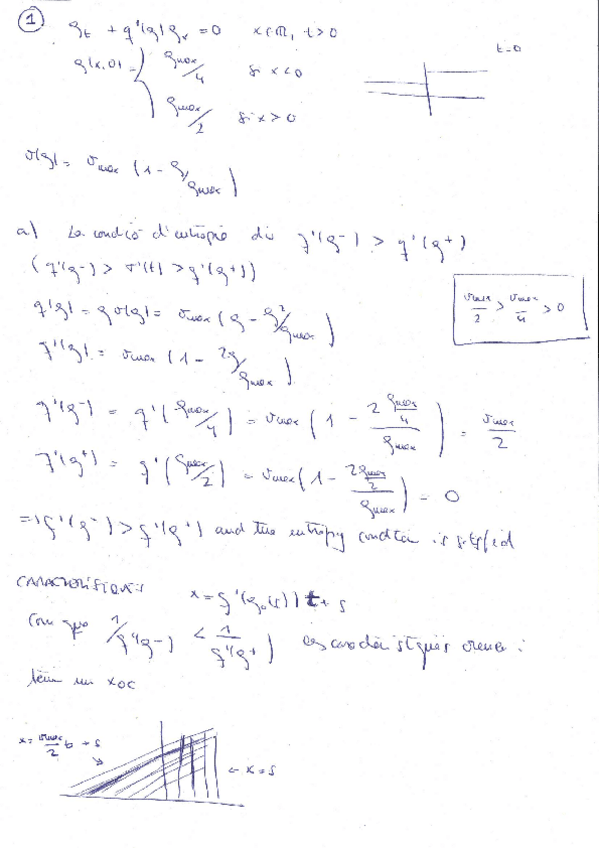 1
g_t + q'(g) g_x = 0 x∈ℝ, t>0
g(x,0) = { g_max/4 si x<0
g_max/2 si x>0
t=0
v(g) = v_max (1 - g/g_max)
a) La condició d'entropia diu q'(g-) > q'(g+)
(q'(g-) > σ'(t) > q'(g+))
v_max/2 > v_max/4 > 0
q(g) = g v(g) = v_max (g - g²/g_max)
q'(g) = v_max (1 - 2g/g_max)
q'(g-) = q'(g_max/4) = v_max (1 - 2 g_max/4 / g_max) = v_max/2
q'(g+) = q'(g_max/2) = v_max (1 - 2 g_max/2 / g_max) = 0
=> q'(g-) > q'(g+) and the entropy condition is satisfied
CARACTERÍSTIQUES x = q'(g_0(s)) t + s
Com que 1/q'(g-) < 1/q'(g+) les característiques creuen :
tenim un xoc
x = v_max/2 t + s
← x = s